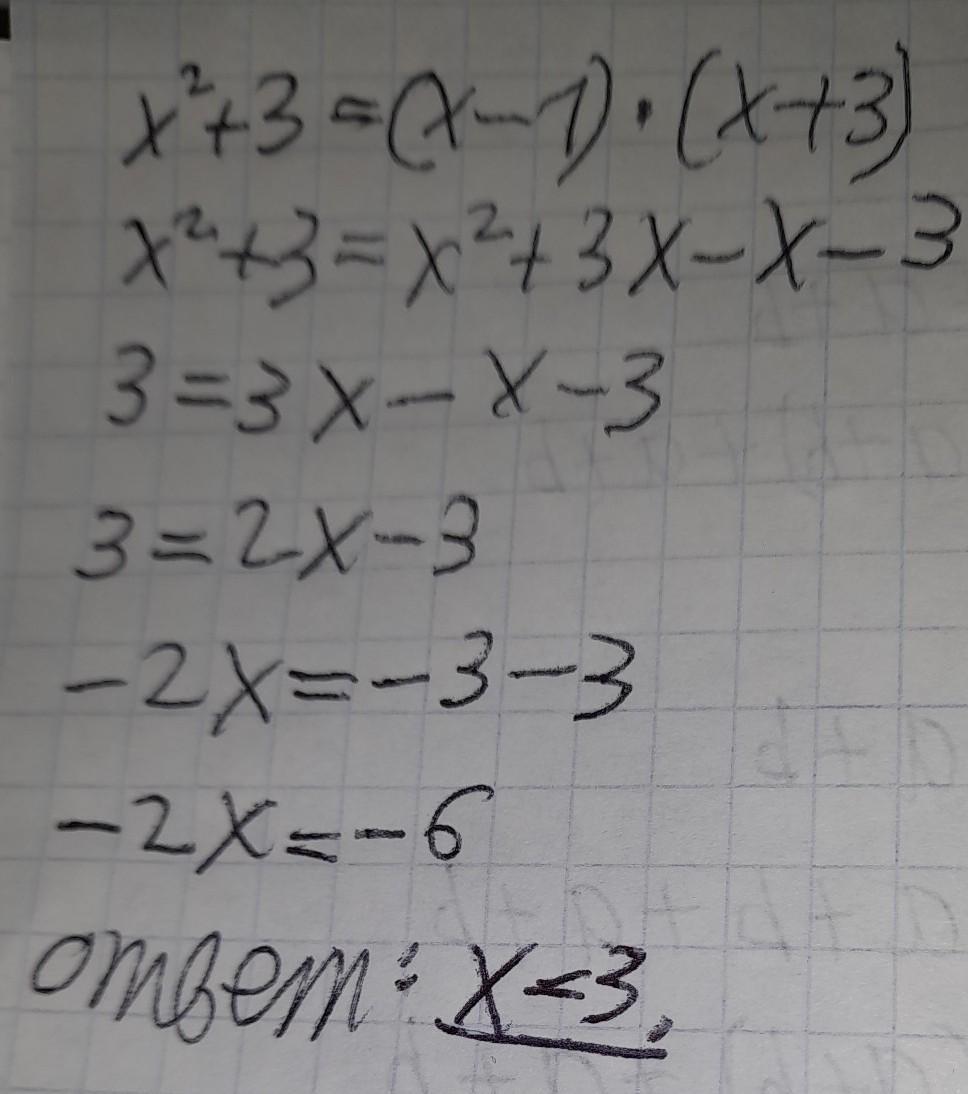 x²+3=(x-1)·(x+3)
x²+3=x²+3x-x-3
3=3x-x-3
3=2x-3
-2x=-3-3
-2x=-6
ответ: x=3.